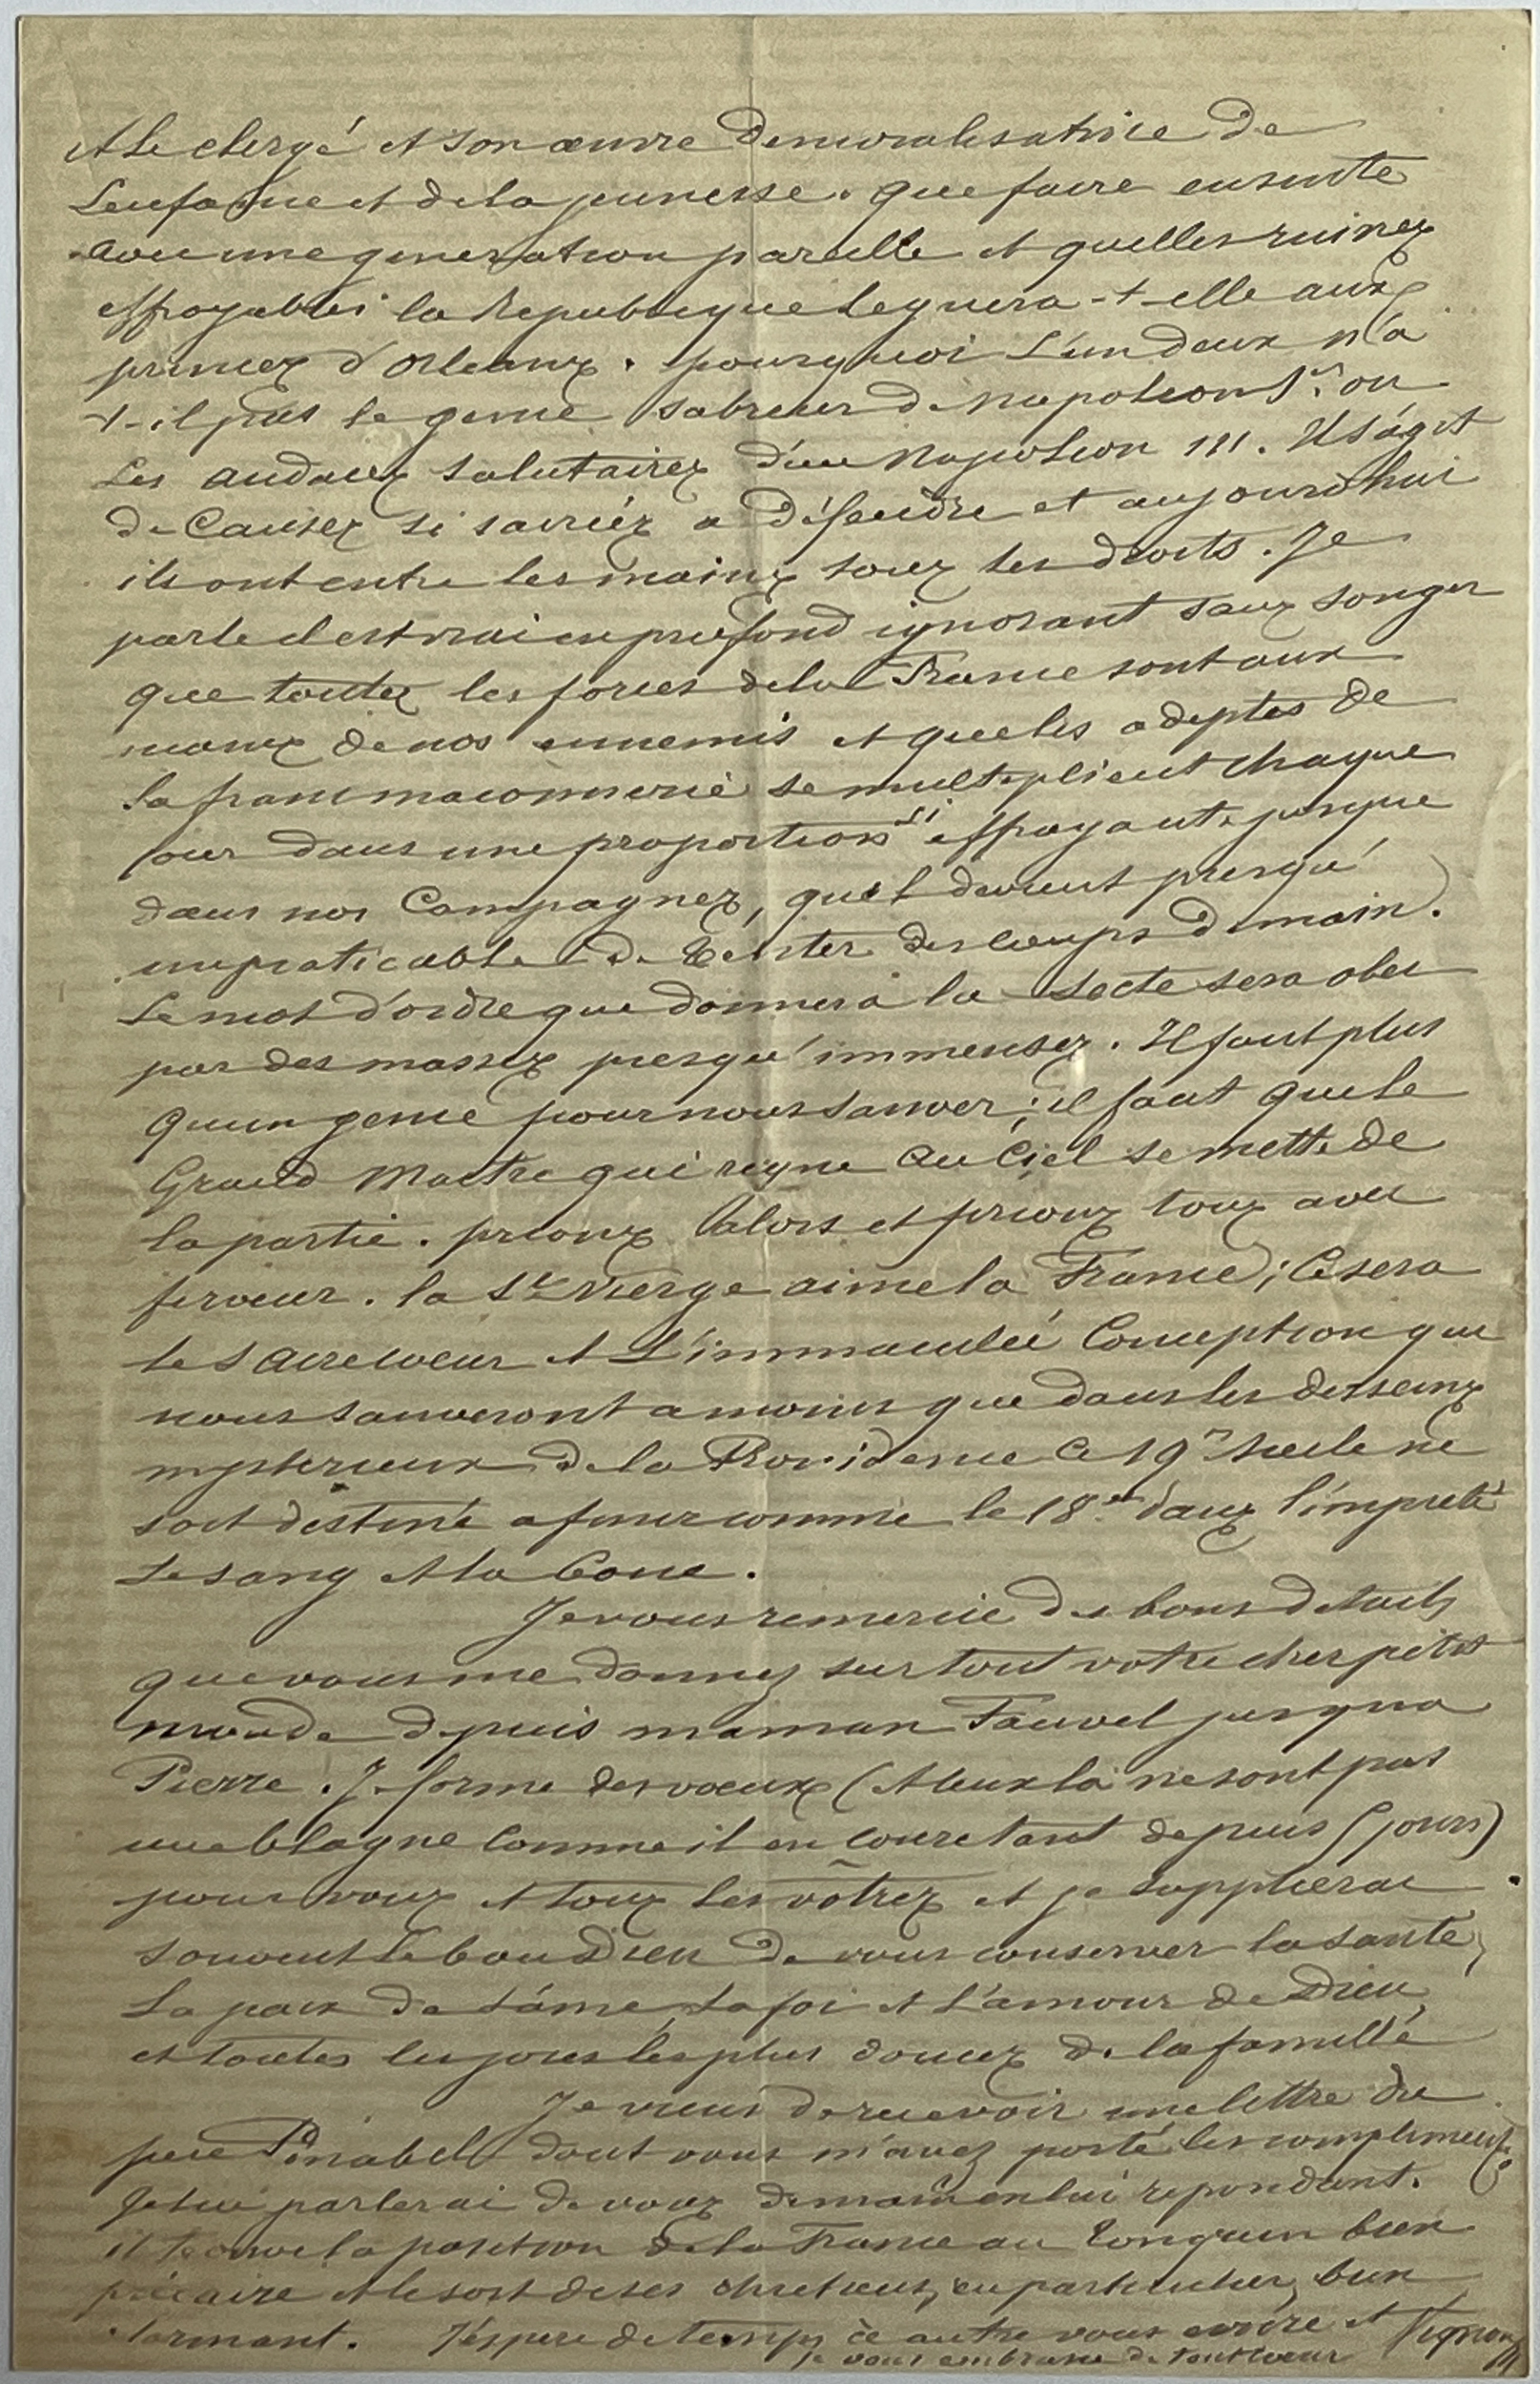 et le clergé et son œuvre demoralisatrice de
L'enfance et de la jeunesse. que faire ensuite
avec une generation pareille et quelles ruines
effroyables la Republique leguera-t-elle aux
princes d'Orleans. pourquoi L'un deux n'a
t-il pas le genie sabreur de Napoleon 1er ou
Les audaces salutaires d'un Napoleon III. Il s'agit
de Causes si sacrées a défendre et aujourd'hui
ils ont entre les mains tous les droits. Je
parle il est vrai en profond ignorant sans songer
que toutes les forces de la France sont aux
mains de nos ennemis et que les adeptes de
la franc maconnerie se multiplient chaque
jour dans une proportion si effrayante jusque
dans nos Campagnes, qu'il devient presqu'
impraticable de tenter des coups de main.
Le mot d'ordre que donnera la secte sera obei
par des masses presqu'immenses. Il faut plus
qu'un genie pour nous sauver; il faut que le
Grand Maitre qui regne au Ciel se mette de
la partie. prions alors et prions tous avec
ferveur. la Ste Vierge aime la France; Ce sera
le Sacre coeur et L'immaculée Conception qui
nous sauveront a moins que dans les desseins
mysterieux de la Providence ce 19e siecle ne
soit destiné a finir comme le 18e dans l'impieté
Le sang et la boue.
Je vous remercie des bons details
que vous me donnez sur tout votre cher petit
monde depuis maman Fauvel jusqua
Pierre. Je forme des voeux (et ceux la ne sont pas
une blague comme il en court tant depuis 5 jours)
pour vous et tous les vôtres et je supplierai
souvent le bon Dieu de vous conserver la santé,
La paix de l'âme, la foi et L'amour de Dieu
et toutes les joies les plus douces de la famille
Je viens de recevoir une lettre du
père Pinabel dont vous m'avez porté les compliments.
Je lui parlerai de vous demain en lui repondant.
il trouve la position de la France au Tonquin bien
précaire et le sort de ses chretiens, en particulier, bien
alarmant. J'espere de temps à autre vous ecrire et
je vous embrasse de tout coeur Vignon